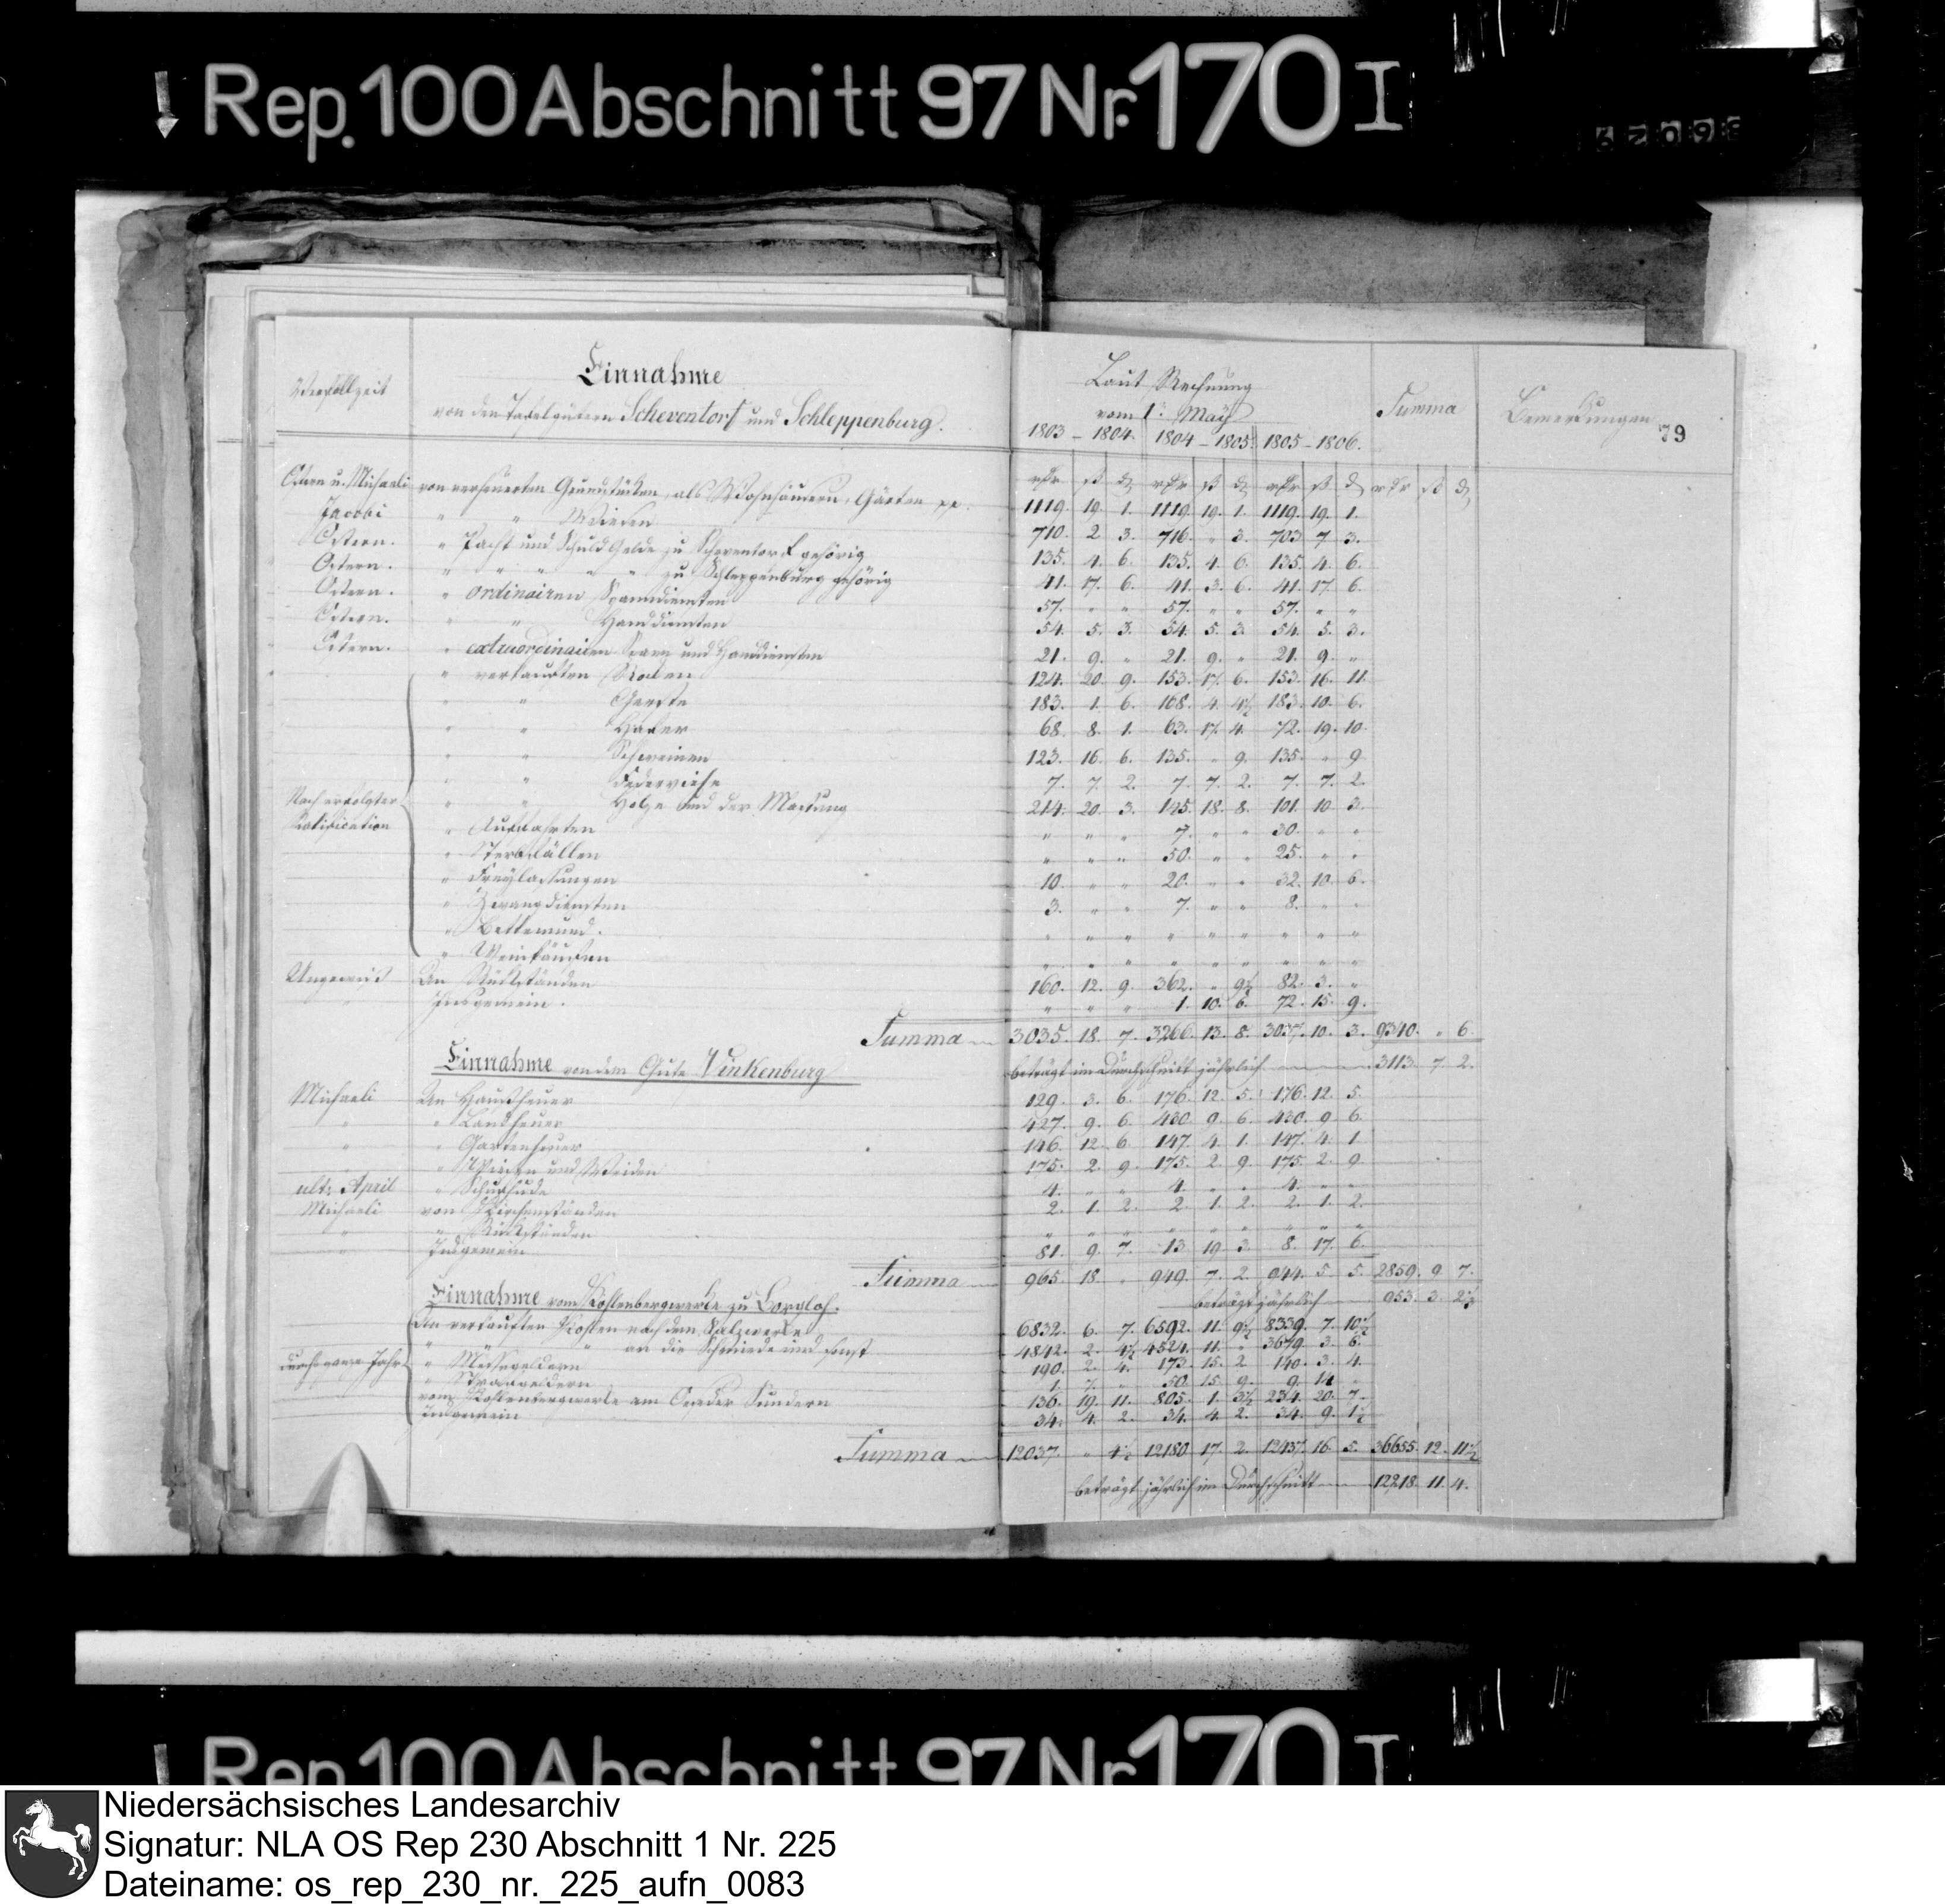 Rep. 100 Abschnitt 97 Nr. 170 I
Verfallzeit
Einnahme
von den Tafelgütern Scheventorf und Schleppenburg.
Laut Rechnung
vom 1. May
1803 – 1804. 1804 – 1805. 1805 – 1806.
Summa
Bemerkungen
79
Ostern u. Michaeli von verheuerten Grundstücken, als Wohnhäusern, Gärten pp. 1119. 19. 1. 1119. 19. 1. 1119. 19. 1.
Jacobi " " Wiesen 710. 2. 3. 716. " 3. 703 7 3.
Ostern. " Pacht und Schuld Gelde zu Scheventorf gehörig 135. 4. 6. 135. 4. 6. 135. 4. 6.
Ostern. " " " " " zu Schleppenburg gehörig 41. 17. 6. 41. 3. 6. 41. 17 6.
Ostern. " ordinairen Spanndiensten 57. " " 57. " " 57. " "
Ostern. " " Handdiensten 54. 5. 3. 54. 5. 3. 54. 5. 3.
Ostern. " extraordinairen Spann und Handdiensten 21. 9. " 21. 9. " 21. 9. "
" verkauften Rocken 124. 20. 9. 153. 17. 6. 153. 16. 11.
" " Gerste 183. 1. 6. 168. 4. 4½ 183. 10. 6.
" " Hafer 68. 8. 1. 63. 17. 4. 72. 19. 10.
" " Schweinen 123. 16. 6. 135. " 9. 135. " 9
" " Federviehe 7. 7. 2. 7. 7. 2. 7. 7. 2.
Nach erfolgter " " Holze und der Mastung 214. 20. 3. 145. 18. 8. 101. 10. 3.
Ratification " Auffahrten " " " 7. " " 30. " "
" Sterbfällen " " " 50. " " 25. " "
" Freylassungen 10. " " 20. " " 32. 10. 6.
" Zwangdiensten 3. " " 7. " " 8. " "
" Bettemund. " " " " " " " " "
" Weinkäufen " " " " " " " " "
Ungewiß An Rückständen 160. 12. 9. 362. " 9½ 82. 3. "
" Insgemein. " " " 1. 10. 6. 72. 15. 9.
Summa 3035. 18. 7. 3266. 13. 8. 3037. 10. 3. 9340. " 6.
Einnahme von dem Gute Vinkenburg
beträgt im Durchschnitt jährlich 3113. 7. 2.
Michaeli An Hausheuer 129. 3. 6. 176. 12. 5. 176. 12. 5.
" " Landheuer 427. 9. 6. 430. 9. 6. 430. 9 6.
" " Gartenheuer 146. 12. 6. 147. 4. 1. 147. 4. 1.
" Wiesen und Weiden 175. 2. 9. 175. 2. 9. 175. 2. 9.
ult: April " Schafhude 4. " " 4. " " 4. " "
Michaeli von Kirchenständen 2. 1. 2. 2. 1. 2. 2. 1. 2.
" " Rückständen " " " " " " " " "
" Insgemein 81. 9. 7. 13. 19. 3. 8. 17. 6.
Summa 965. 18. " 949. 7. 2. 944. 5. 5. 2859. 9 7.
Einnahme vom Kohlenbergwerke zu Borgloh.
beträgt jährlich 953. 3. 2⅓
An verkauften Kohlen nach dem Salzwerke 6832. 6. 7. 6592. 11. 9½ 8339. 7. 10½
" " " an die Schmiede und sonst 4842. 2. 4½ 4524. 11. " 3679. 3. 6.
durchs ganze Jahr " Messegeldern 190. 2. 4. 173. 15. 2. 140. 3. 4.
" Strafgeldern 1. 7. " 50. 15. 9. 9. 14 "
vom Kohlenbergwerke am Oeseder Sundern 136. 19. 11. 805. 1. 3½ 234. 20. 7.
Insgemein 34. 4. 2. 34. 4. 2. 34. 9. 1½
Summa 12037. " 4½ 12180 17. 2. 12437. 16. 5. 36655. 12. 11½
beträgt jährlich im Durchschnitt 12218. 11. 4.
Rep. 100 Abschnitt 97 Nr. 170 I
Niedersächsisches Landesarchiv
Signatur: NLA OS Rep 230 Abschnitt 1 Nr. 225
Dateiname: os_rep_230_nr._225_aufn_0083